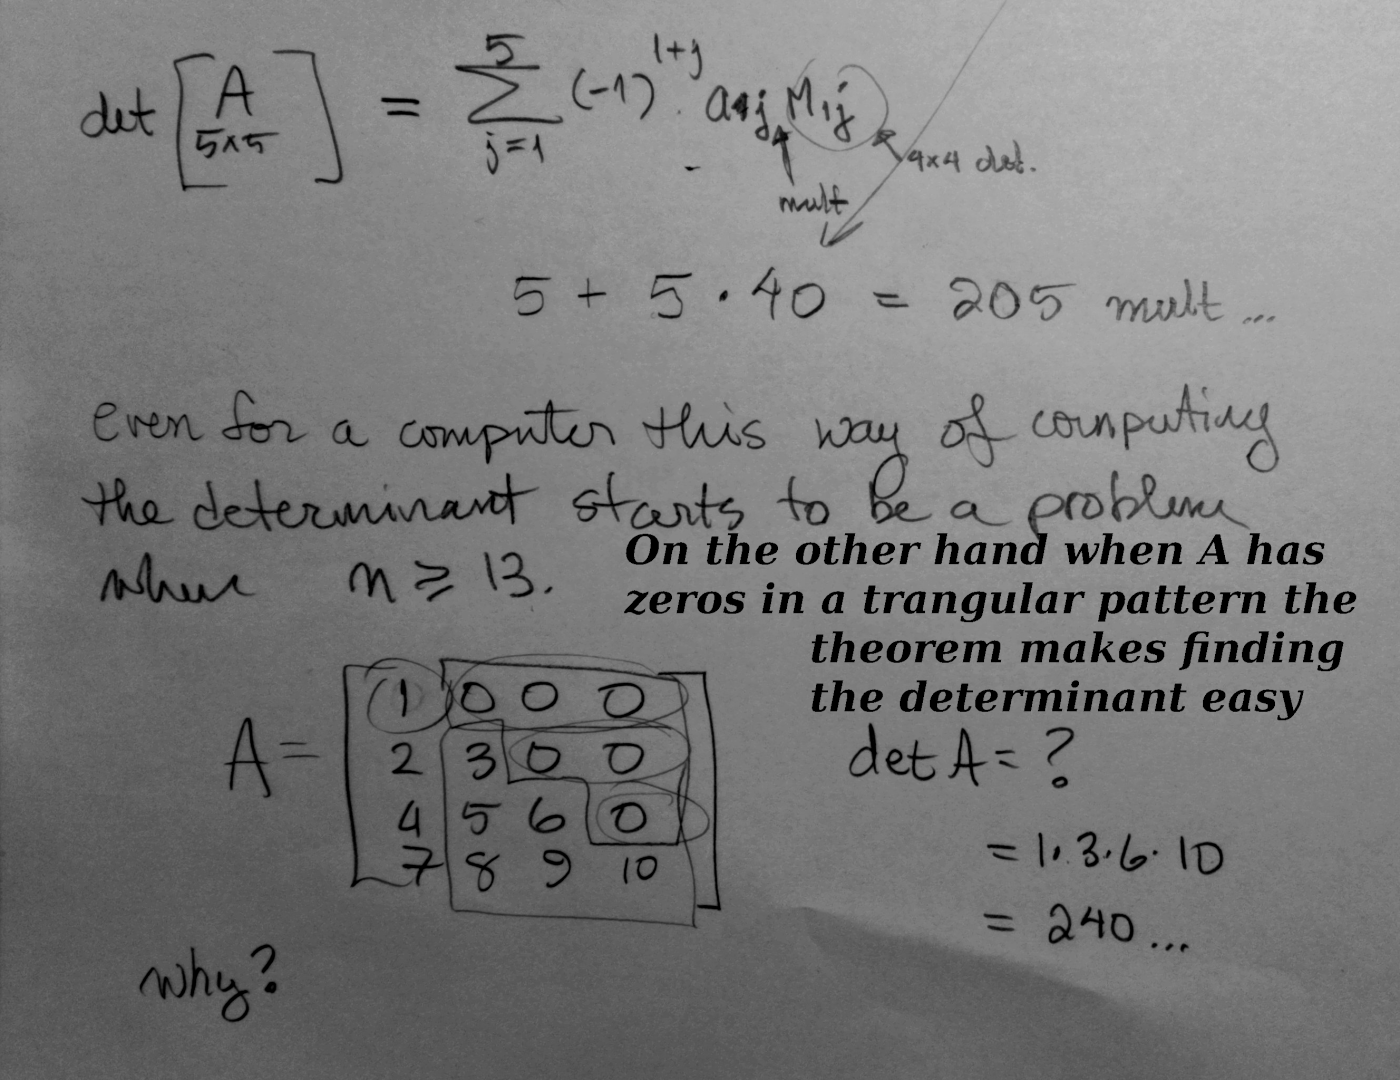 det [A 5x5] = 5 Σ j=1 (-1)^1+j · a1j M1j
4x4 det.
mult
5 + 5 · 40 = 205 mult ...
even for a computer this way of computing
the determinant starts to be a problem
when n ⩾ 13.
On the other hand when A has
zeros in a trangular pattern the
theorem makes finding
the determinant easy
A = [1 0 0 0
2 3 0 0
4 5 6 0
7 8 9 10]
det A = ?
= 1·3·6·10
= 240 ...
why?